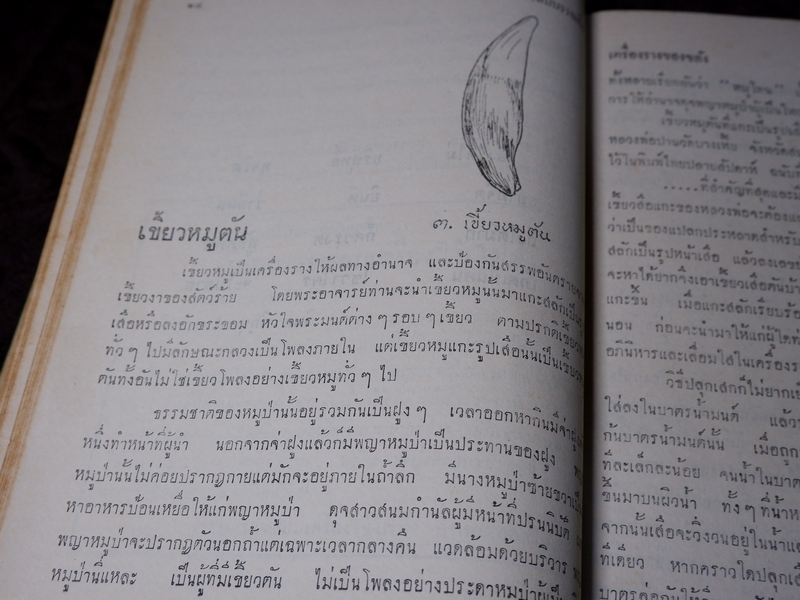 ๓. เขี้ยวหมูตัน
เขี้ยวหมูตัน
เขี้ยวหมูเป็นเครื่องรางให้ผลทางอำนาจ และป้องกันสรรพอันตราย
เขี้ยวงาของสัตว์ร้าย โดยพระอาจารย์ท่านจะนำเขี้ยวหมูนั้นมาแกะสลักเป็น
เสือหรือลงอักขระขอม หัวใจพระมนต์ต่าง ๆ รอบ ๆ เขี้ยว ตามปรกติเขี้ยว
ทั่ว ๆ ไปมีลักษณะกลวงเป็นโพลงภายใน แต่เขี้ยวหมูแกะรูปเสือนั้นเป็นเขี้ยว
ตันทั้งอันไม่ใช่เขี้ยวโพลงอย่างเขี้ยวหมูทั่ว ๆ ไป
ธรรมชาติของหมูป่านั้นอยู่รวมกันเป็นฝูง ๆ เวลาออกหากินมีจ่าฝูง
หนึ่งทำหน้าที่ผู้นำ นอกจากจ่าฝูงแล้วก็มีพญาหมูป่าเป็นประทานของฝูง
หมูป่านั้นไม่ค่อยปรากฏกายแต่มักจะอยู่ภายในถ้ำลึก มีนางหมูป่าซ้ายขวา
หาอาหารป้อนเหยื่อให้แก่พญาหมูป่า ดุจสาวสนมกำนัลผู้มีหน้าที่ปรนนิบัติ
พญาหมูป่าจะปรากฏตัวนอกถ้ำแต่เฉพาะเวลากลางคืน แวดล้อมด้วยบริวาร
หมูป่านี้แหละ เป็นผู้ที่มีเขี้ยวตัน ไม่เป็นโพลงอย่างประดาหมูป่า
เครื่องรางของขลัง
ทั้งหลายเรียกกันว่า "หมูโทน"
การให้อำนาจดุจพญาหมูป่า
เขี้ยวหมูตันที่แกะเป็นรูป
หลวงพ่อปานวัดบางเหี้ย จังหวัด
ไว้ในพิมพ์ไทยปลายสัปดาห์ ฉบับ
.....ที่สำคัญที่สุดและ
เขี้ยวเสือแกะของหลวงพ่อจะต้อง
ว่าเป็นของแปลกประหลาดสำหรับ
สลักเป็นรูปหน้าเสือ แล้วลงเลข
จะหาได้ยากจึงเอาเขี้ยวเสือตัน
แกะขึ้น เมื่อแกะสลักเรียบร้อย
นอน ก่อนจะนำมาให้แก่ผู้ใด
อภินิหารและเลื่อมใสในเครื่องราง
วิธีปลุกเสกก็ไม่ยากเย็น
ใส่ลงในบาตรน้ำมนต์ แล้ว
ก้นบาตรน้ำมนต์นั้น เมื่อถูก
ทีละเล็กละน้อย จนน้ำในบาตร
ขึ้นมาบนผิวน้ำ ทั้ง ๆ ที่น้ำ
จากนั้นเสือจะวิ่งวนอยู่ในน้ำ
ทีเดียว หากคราวใดปลุกเสือ